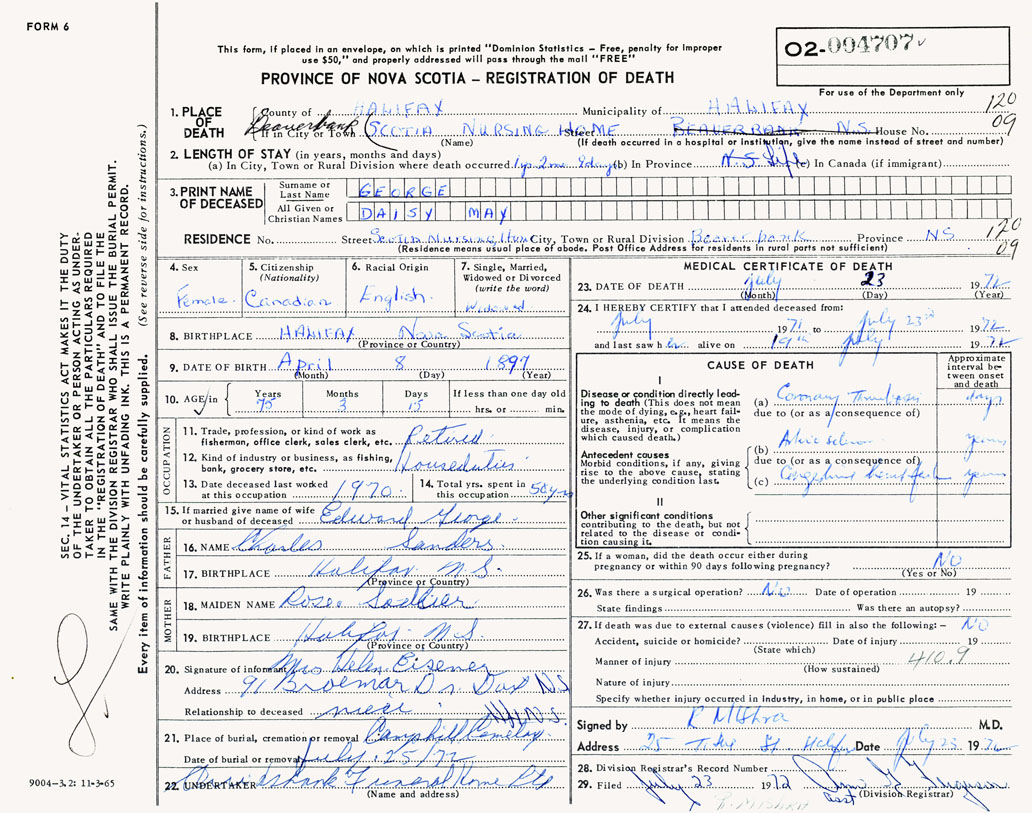 FORM 6
This form, if placed in an envelope, on which is printed "Dominion Statistics – Free, penalty for improper
use $50," and properly addressed will pass through the mail "FREE"
PROVINCE OF NOVA SCOTIA – REGISTRATION OF DEATH
O2-094707
For use of the Department only
120
09
SEC. 14 – VITAL STATISTICS ACT MAKES IT THE DUTY
OF THE UNDERTAKER OR PERSON ACTING AS UNDER-
TAKER TO OBTAIN ALL THE PARTICULARS REQUIRED
IN THE "REGISTRATION OF DEATH" AND TO FILE THE
SAME WITH THE DIVISION REGISTRAR WHO SHALL ISSUE THE BURIAL PERMIT.
WRITE PLAINLY WITH UNFADING INK. THIS IS A PERMANENT RECORD.
Every item of information should be carefully supplied. (See reverse side for instructions.)
1. PLACE OF DEATH County of HALIFAX Municipality of HALIFAX
Beaverbank If in City or Town SCOTIA NURSING HOME Street BEAVERBANK N.S. House No.
(Name) (If death occurred in a hospital or institution, give the name instead of street and number)
2. LENGTH OF STAY (in years, months and days)
(a) In City, Town or Rural Division where death occurred 1 yr 2 mo 8 days (b) In Province N.S. life (c) In Canada (if immigrant)
3. PRINT NAME OF DECEASED
Surname or Last Name GEORGE
All Given or Christian Names DAISY MAY
RESIDENCE No. Street Scotia Nursing Home City, Town or Rural Division Beaverbank Province NS
120
09
(Residence means usual place of abode. Post Office Address for residents in rural parts not sufficient)
4. Sex
Female
5. Citizenship (Nationality)
Canadian
6. Racial Origin
English
7. Single, Married, Widowed or Divorced (write the word)
Widowed
8. BIRTHPLACE HALIFAX Nova Scotia
(Province or Country)
9. DATE OF BIRTH April 8 1897
(Month) (Day) (Year)
10. AGE in Years 75 Months 3 Days 15 If less than one day old hrs. or min.
OCCUPATION
11. Trade, profession, or kind of work as fisherman, office clerk, sales clerk, etc. Retired
12. Kind of industry or business, as fishing, bank, grocery store, etc. Houseduties
13. Date deceased last worked at this occupation 1970
14. Total yrs. spent in this occupation 50 yrs
15. If married give name of wife or husband of deceased Edward George
FATHER
16. NAME Charles Sanders
17. BIRTHPLACE Halifax N.S.
(Province or Country)
MOTHER
18. MAIDEN NAME Rose
19. BIRTHPLACE Halifax N.S.
(Province or Country)
20. Signature of informant Mrs Helen Eisener
Address 91 Braemar Dr. Dart N.S.
Relationship to deceased niece
21. Place of burial, cremation or removal Camphill Cemetery
Date of burial or removal July 25/72
22. UNDERTAKER Funeral Home Ltd
(Name and address)
9004–3.2: 11-3-65
MEDICAL CERTIFICATE OF DEATH
23. DATE OF DEATH July 23 1972
(Month) (Day) (Year)
24. I HEREBY CERTIFY that I attended deceased from:
July 1971 to July 23rd 1972
and last saw her alive on 19th July 1972
CAUSE OF DEATH
Approximate interval between onset and death
I
Disease or condition directly leading to death (This does not mean the mode of dying, e.g., heart failure, asthenia, etc. It means the disease, injury, or complication which caused death.)
(a) Coronary Thrombosis days
due to (or as a consequence of)
Antecedent causes
Morbid conditions, if any, giving rise to the above cause, stating the underlying condition last.
(b) years
due to (or as a consequence of)
(c) years
II
Other significant conditions
contributing to the death, but not related to the disease or condition causing it.
25. If a woman, did the death occur either during
pregnancy or within 90 days following pregnancy? NO
(Yes or No)
26. Was there a surgical operation? NO Date of operation 19
State findings Was there an autopsy?
27. If death was due to external causes (violence) fill in also the following: – NO
Accident, suicide or homicide? Date of injury 19
(State which)
Manner of injury 410.9
(How sustained)
Nature of injury
Specify whether injury occurred in industry, in home, or in public place
Signed by R Mishra M.D.
Address 25 St. Halifax Date July 23 1972
28. Division Registrar's Record Number
29. Filed July 23 1972
(Division Registrar)
Asst
R. MISHRA